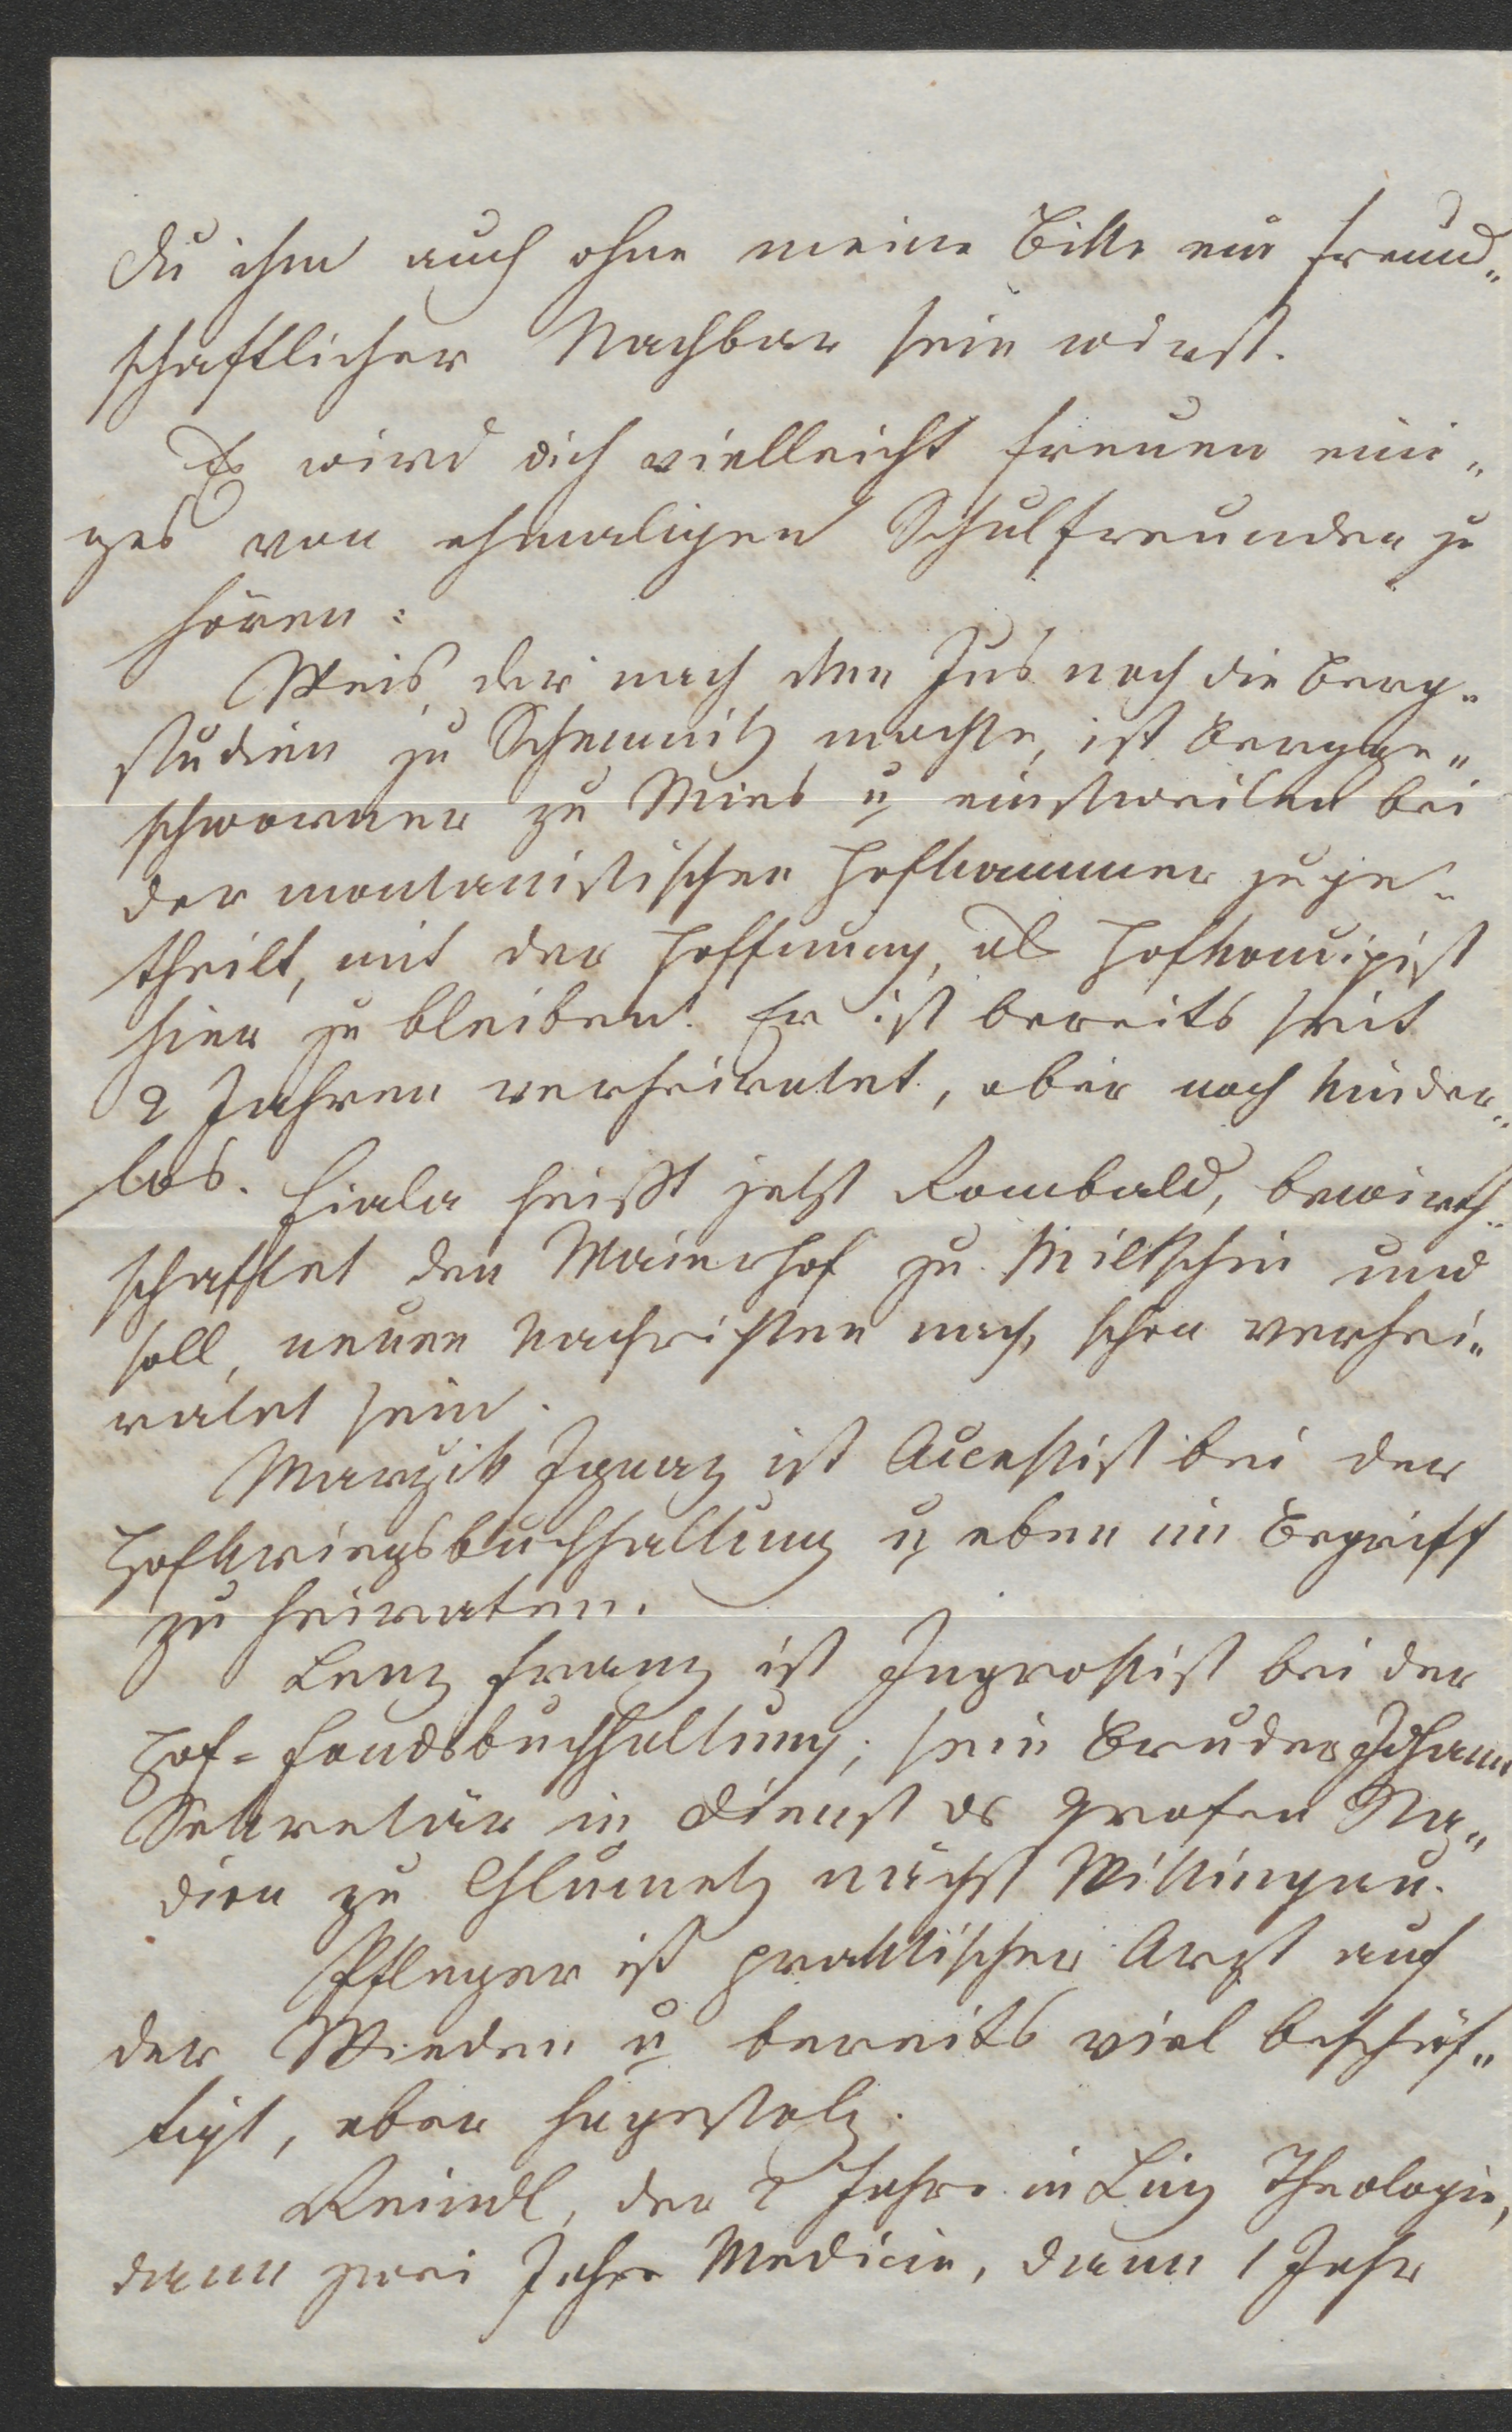 du ihm auch ohne meine Bitte ein freund„
schaftlicher Nachbar sein wirst.
Es wird dich vielleicht freuen eini„
ges von ehmaligen Schulfreunden zu
hören:
Weis, der nach dem Jus noch die Berg„
studien zu Schemnitz machte, ist Bergge„
schworner zu Mies u einstweilen bei
der montanistischen Hofkammer zuge„
theilt, mit der Hoffnung, als Hofkonzipist
hier zu bleiben. Er ist bereits seit
2 Jahren verheiratet, aber noch kinder„
los. Fiala heißt jetzt Rombald, bewirth„
schaftet den Maierhof zu Miltschin und
soll, neuen Nachrichten nach, schon verhei„
ratet sein.
Marzik Ignaz ist Accessist bei der
Hofkriegsbuchhaltung u eben im Begriff
zu heiraten.
Lenz Franz ist Ingrossist bei der
Hof-Fondsbuchhaltung; sein Bruder Johann
Sekretär in Dienst des Grafen
zu Chlumetz nächst Wittingau.
Pfleger ist praktischer Arzt auf
der Wieden u bereits viel beschäf„
tigt, aber Hagestolz.
Reindl, der 2 Jahre in Linz Theologie,
dann zwei Jahre Medicin, dann 1 Jahr